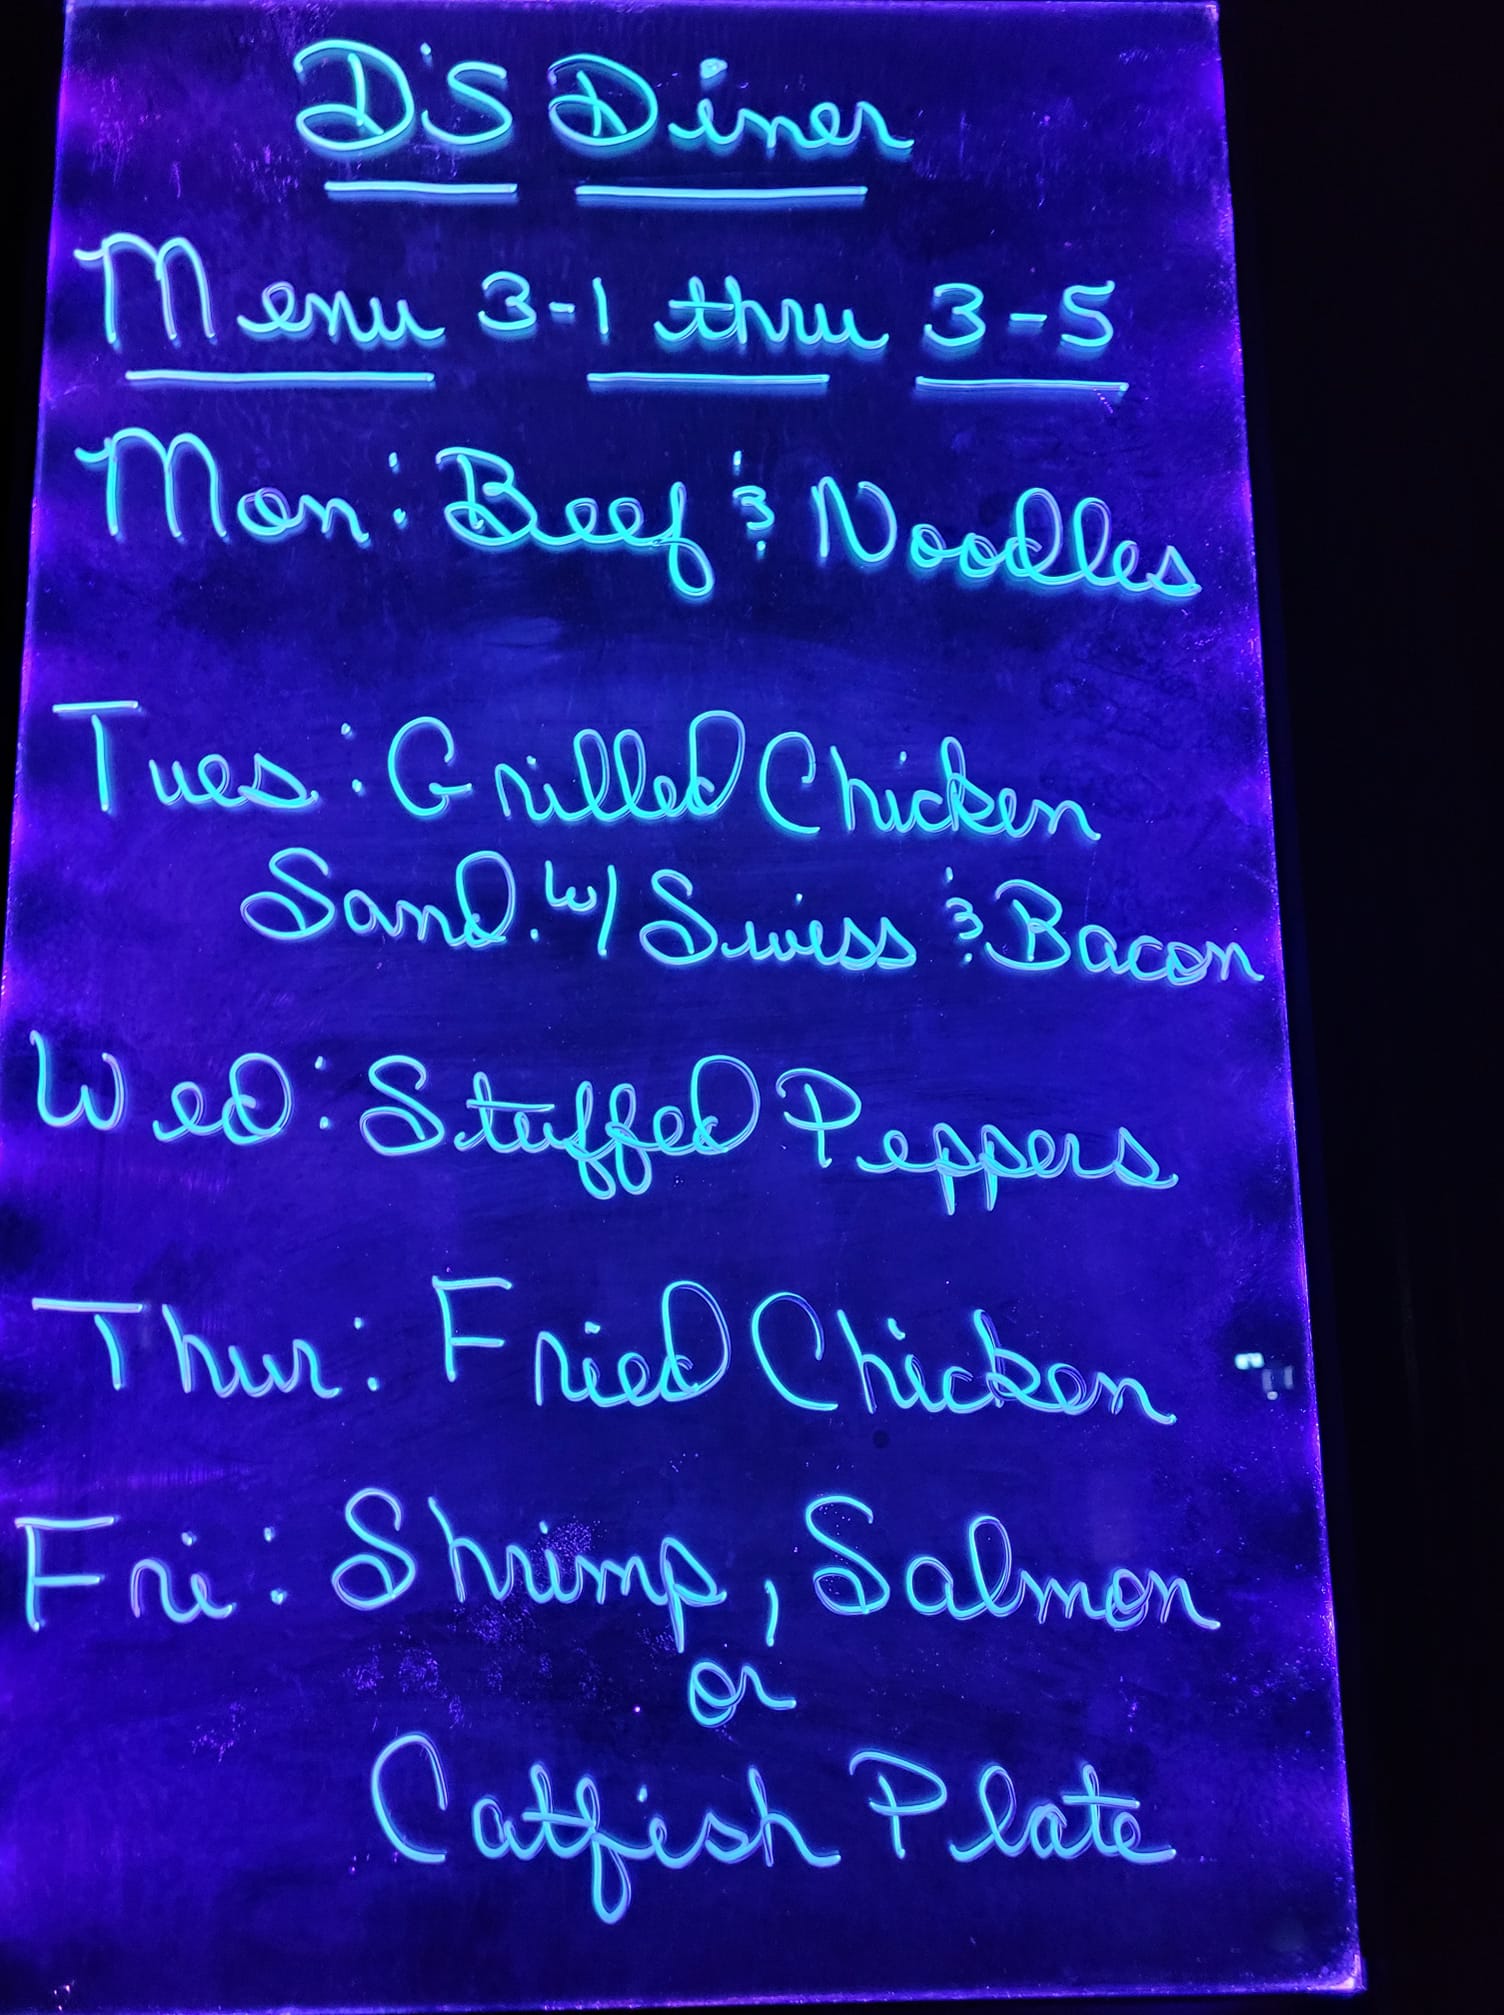 D'S Diner
Menu 3-1 thru 3-5
Mon: Beef & Noodles
Tues: Grilled Chicken
Sand. w/ Swiss & Bacon
Wed: Stuffed Peppers
Thur: Fried Chicken
Fri: Shrimp, Salmon
or
Catfish Plate